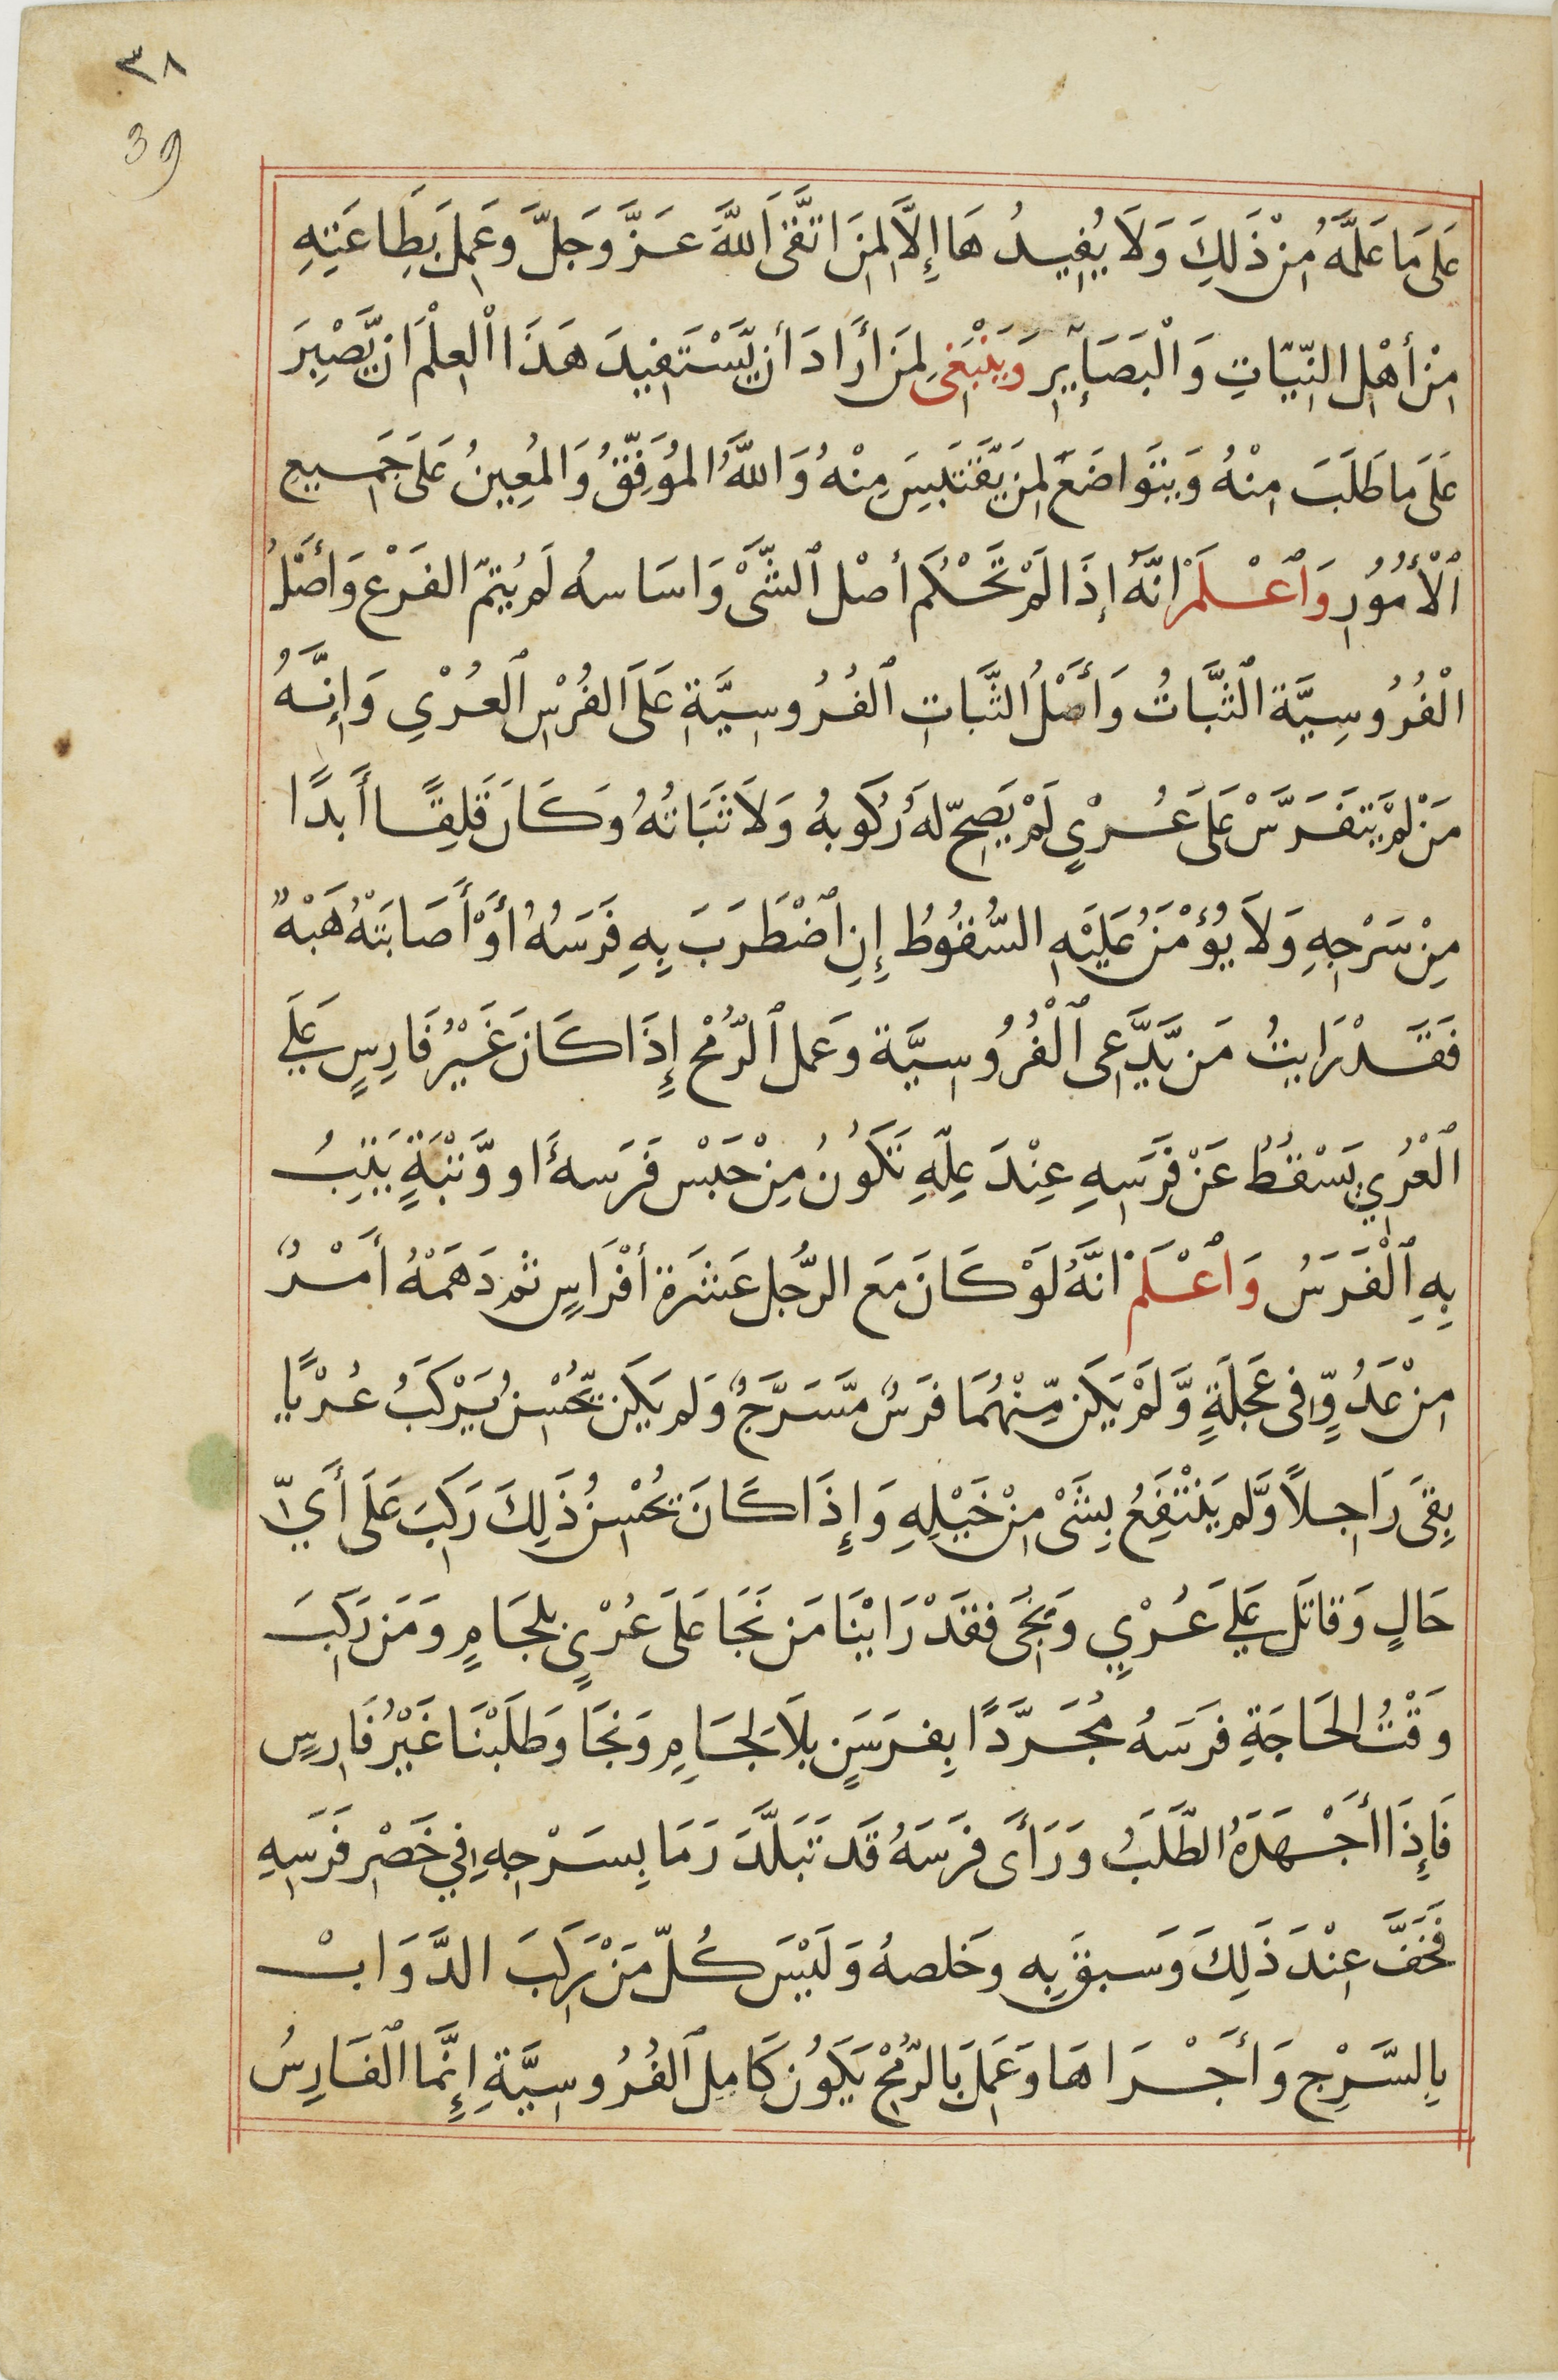 ٣٨
39
عَلَى مَا عَلَّمَهُ مِنْ ذَلِكَ وَلَا يُفِيدُهَا إِلَّا لِمَنِ اتَّقَى اللَّهَ عَزَّ وَجَلَّ وَعَمِلَ بِطَاعَتِهِ
مِنْ أَهْلِ النِّيَّاتِ وَالْبَصَآيِرِ وَيَنْبَغِى لِمَنْ أَرَادَ أَن يَّسْتَفِيدَ هَذَا الْعِلْمَ ان يَّصْبِرَ
عَلَى مَا طَلَبَ مِنْهُ وَيَتَوَاضَعَ لِمَن يَّقْتَبِسَ مِنْهُ وَاللَّهُ الْمُوَفِّقُ وَالْمُعِينُ عَلَى جَمِيعِ
ٱلْأُمُورِ وَٱعْلَمْ انَّهُ إِذَا لَمْ تَحْكُم أصْل ٱلشَّىْ وَاسَاسهُ لَم يُتِمّ الفَرْع وَأَصْلُ
الْفُرُوسِيَّة الثَّبَاتُ وَأَصْلُ الثَّبَاتِ ٱلفُرُوسِيَّةِ عَلَى الفُرْسِ ٱلعُرْيِ وَإِنَّهُ
مَنْ لَمْ يَتَفَرَّسْ عَلَى عُرْيٍ لَمْ يَصِحّ لَهُ رُكُوبهُ وَلَا ثَبَاتُهُ وَكَانَ قَلِقًا أَبَدًا
مِنْ سَرْجِهِ وَلَا يُؤْمَنُ عَلَيْهِ السُّقُوطُ إِنِ ٱضْطَرَبَ بِهِ فَرَسَهُ أَوْ أَصَابَتْهُ هَبْهٌ
فَقَدْ رَايتُ مَن يَّدَّعِى ٱلْفُرُوسِيَّة وَعَمل ٱلرُّمْح إِذَا كَانَ غَيْرُ فَارِسٍ عَلَى
ٱلْعُرْيِ يَسْقُطُ عَنْ فَرَسِهِ عِنْدَ عِلِّهِ تَكُونُ مِنْ حَبَسْ فَرَسهُ او وَّثْبَةٍ يَثِبُ
بِهِ ٱلْفَرَسُ وَٱعْلَمْ انَّهُ لَوْ كَانَ مَع الرَّجُل عَشَرَة أَفْرَاسٍ ثم دَهَمَهُ أَمْرٌ
مِنْ عَدُوٍّ فى عَجَلَةٍ وَّلَمْ يَكَن مِّنْهُمَا فَرَسٌ مَّسَرَّجٌ وَلَم يَكَن يُّحْسِنُ يَرْكَبُ عُرْيًا
بِقَىَ رَاجِلاً وَّلَم يَنْتَفِعُ بِشَىْ مِنْ خَيْلِهِ وَإِذَا كَانَ يُحْسِنُ ذَلِكَ رَكِبَ عَلَى أَيّ
حَالٍ وَقَاتَل عَلَى عُرْيٍ وَنَجَى فَقَدْ رَايْنَا مَن نَجَا عَلَى عُرْيٍ بِلِجَامٍ وَمَن رَكِبَ
وَقْتُ الحَاجَةِ فَرَسَهُ مُجَرَّدًا بِفَرَسَنٍ بِلَا لِجَامِ وَنَجَا وَطَلَبْنَا غَيْرُ فَارِسٍ
فَإِذَا أَجْهَدَهُ الطَّلَبُ وَرَأَى فَرَسَهُ قَد تَبَلَّدَ رَمَا بِسَرْجِهِ فِي خَصْرِ فَرَسِهِ
فَخَفَّ عِنْدَ ذَلِكَ وَسَبق بِهِ وخَلصهُ وَلَيْسَ كُلّ مَنْ رَكِبَ الدَّوَابْ
بِالسَّرِجِ وَأَجْرَاهَا وَعَمِلَ بَالرّمْح يَكُون كَامِل ٱلفُرُوسِيَّةِ إِنَّمَا ٱلفَارِسُ